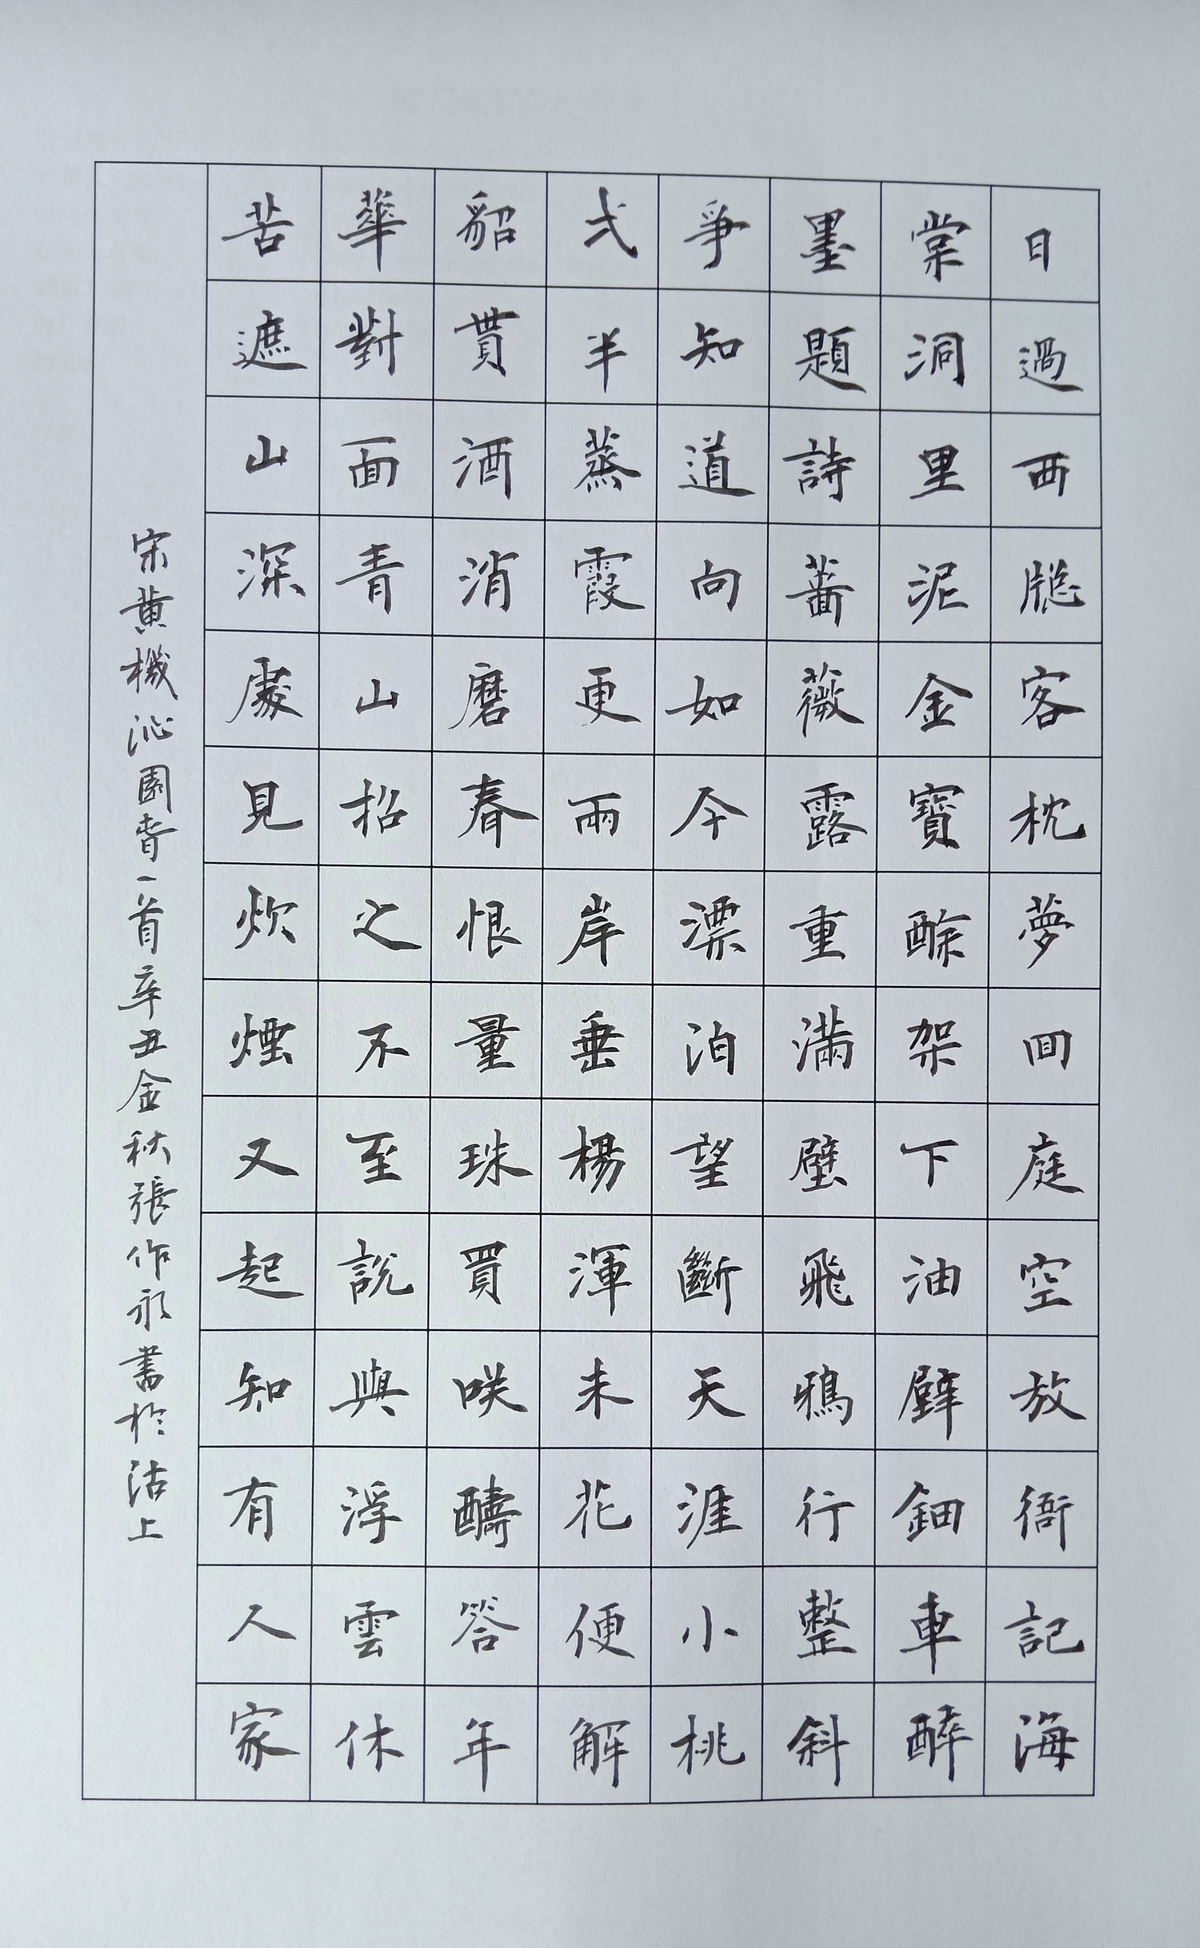 日過西牕客枕夢回庭空放衙記海
棠洞里泥金寶酴架下油壁鈿車醉
墨題詩薔薇露重滿壁飛鴉行整斜
爭知道向如今漂泊望斷天涯小桃
弍半蒸霞更兩岸垂楊渾未花便解
貂貰酒消磨春恨量珠買咲酬答年
華對面青山招之不至說與浮雲休
苦遮山深處見炊煙又起知有人家
宋黄機沁園春一首辛丑金秋張作永書於沽上